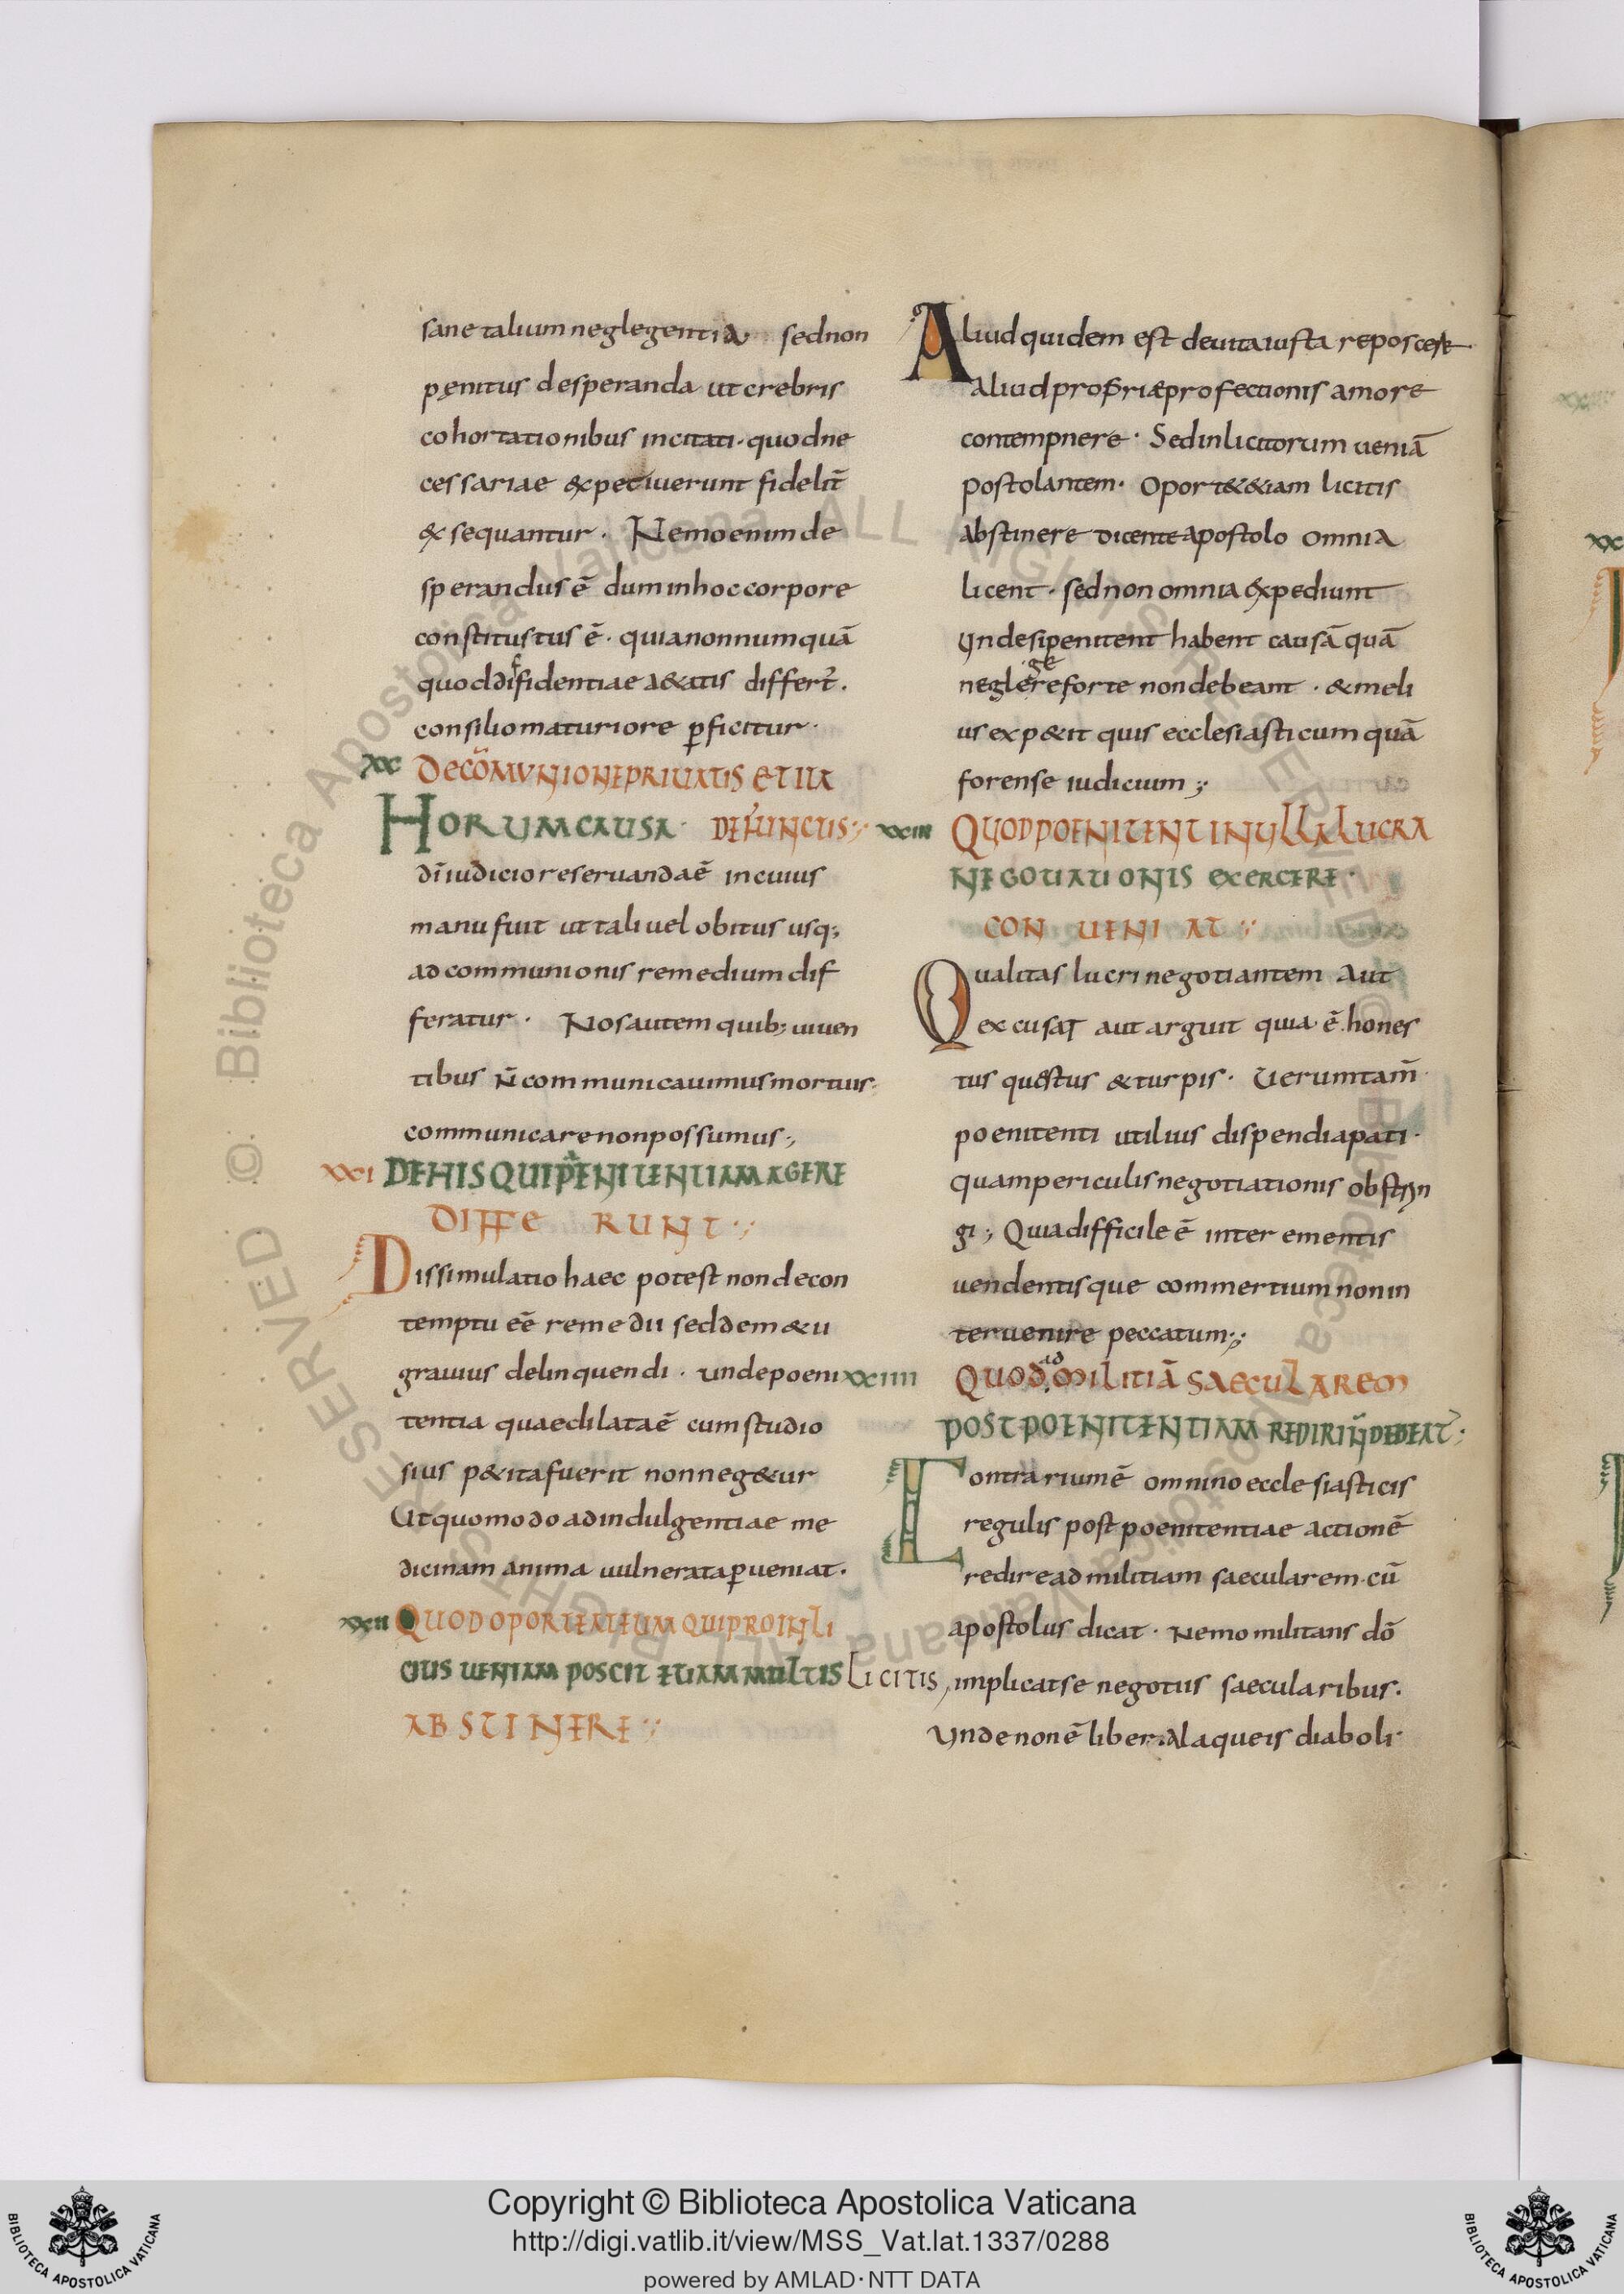 sane talium neglegentia· sed non
pęnitus desperanda ut crebris
cohortationibus incitati· quod ne
cessariae expetiuerunt fidelit̄
exsequantur· Nemo enim de
sperandus ē dum in hoc corpore
constitustus ē· quia nonnumquā
quod diffidentiae aetatis differt̄.
consilio maturiore ꝑficitur·
XX De cōmunione priuatis et ita
Horum causa· defuncus:
dī iudicio reseruanda ē in cuius
manu fuit ut tali uel obitus usq;
ad communionis remedium dif
feratur· Nos autem quib; uiuen
tibus n̄ communicauimus mortuis·
communicare non possumus·,
XXI DE HIS QUI PENITENTIAM AGERE
DIFFERUNT:
Dissimulatio haec potest non de con
temptu eē remedii sed de metu
grauius delinquendi· unde poeni
tentia quae dilata ē cum studio
sius petita fuerit non negetur
Ut quomodo ad indulgentiae me
dicinam anima uulnerata ꝑueniat.
XXII QUOD OPORTEAT EUM QUI PRO INLI
CITIS UENIAM POSCIT ETIAM MULTIS LICITIS
ABSTINERE:
Aliud quidem est de uita iusta reposcere
aliud propriae profectionis amore
contempnere· Sed inlicitorum ueniā
postolantem· Oportet etiam licitis
abstinere dicente apostolo omnia
licent· sed non omnia expediunt
Unde si penitent habent causā quā
neglegere forte non debeant· & meli
us expetit quis ecclesiasticum quā
forense iudicium;
XXIII QUOD POENITENT IN ULLA LUCRA
NEGOTIATIONIS EXERCERE·
CONUENIAT:
Qualitas lucri negotiantem aut
excusat aut arguit quia ē hones
tus questus & turpis· Uerumtam̄
poenitenti utilius dispendia pati·
quam periculis negotiationis obstrin
gi; Quia difficile ē inter ementis
uendentisque commertium non in
teruenire peccatum;
XXIIII QUOD ad MILITIĀ SAECULAREM
POST POENITENTIAM REDIRI N̄ DEBEAT̄:
Contrarium ē omnino ecclesiasticis
regulis post poenitentiae actionē
redire ad militiam saecularem· cū
apostolus dicat· Nemo militans dō
implicat se negotiis saecularibus.
Unde non ē liber a laqueis diaboli·
Copyright © Biblioteca Apostolica Vaticana
http://digi.vatlib.it/view/MSS_Vat.lat.1337/0288
powered by AMLAD·NTT DATA
BIBLIOTECA APOSTOLICA VATICANA
BIBLIOTECA APOSTOLICA VATICANA